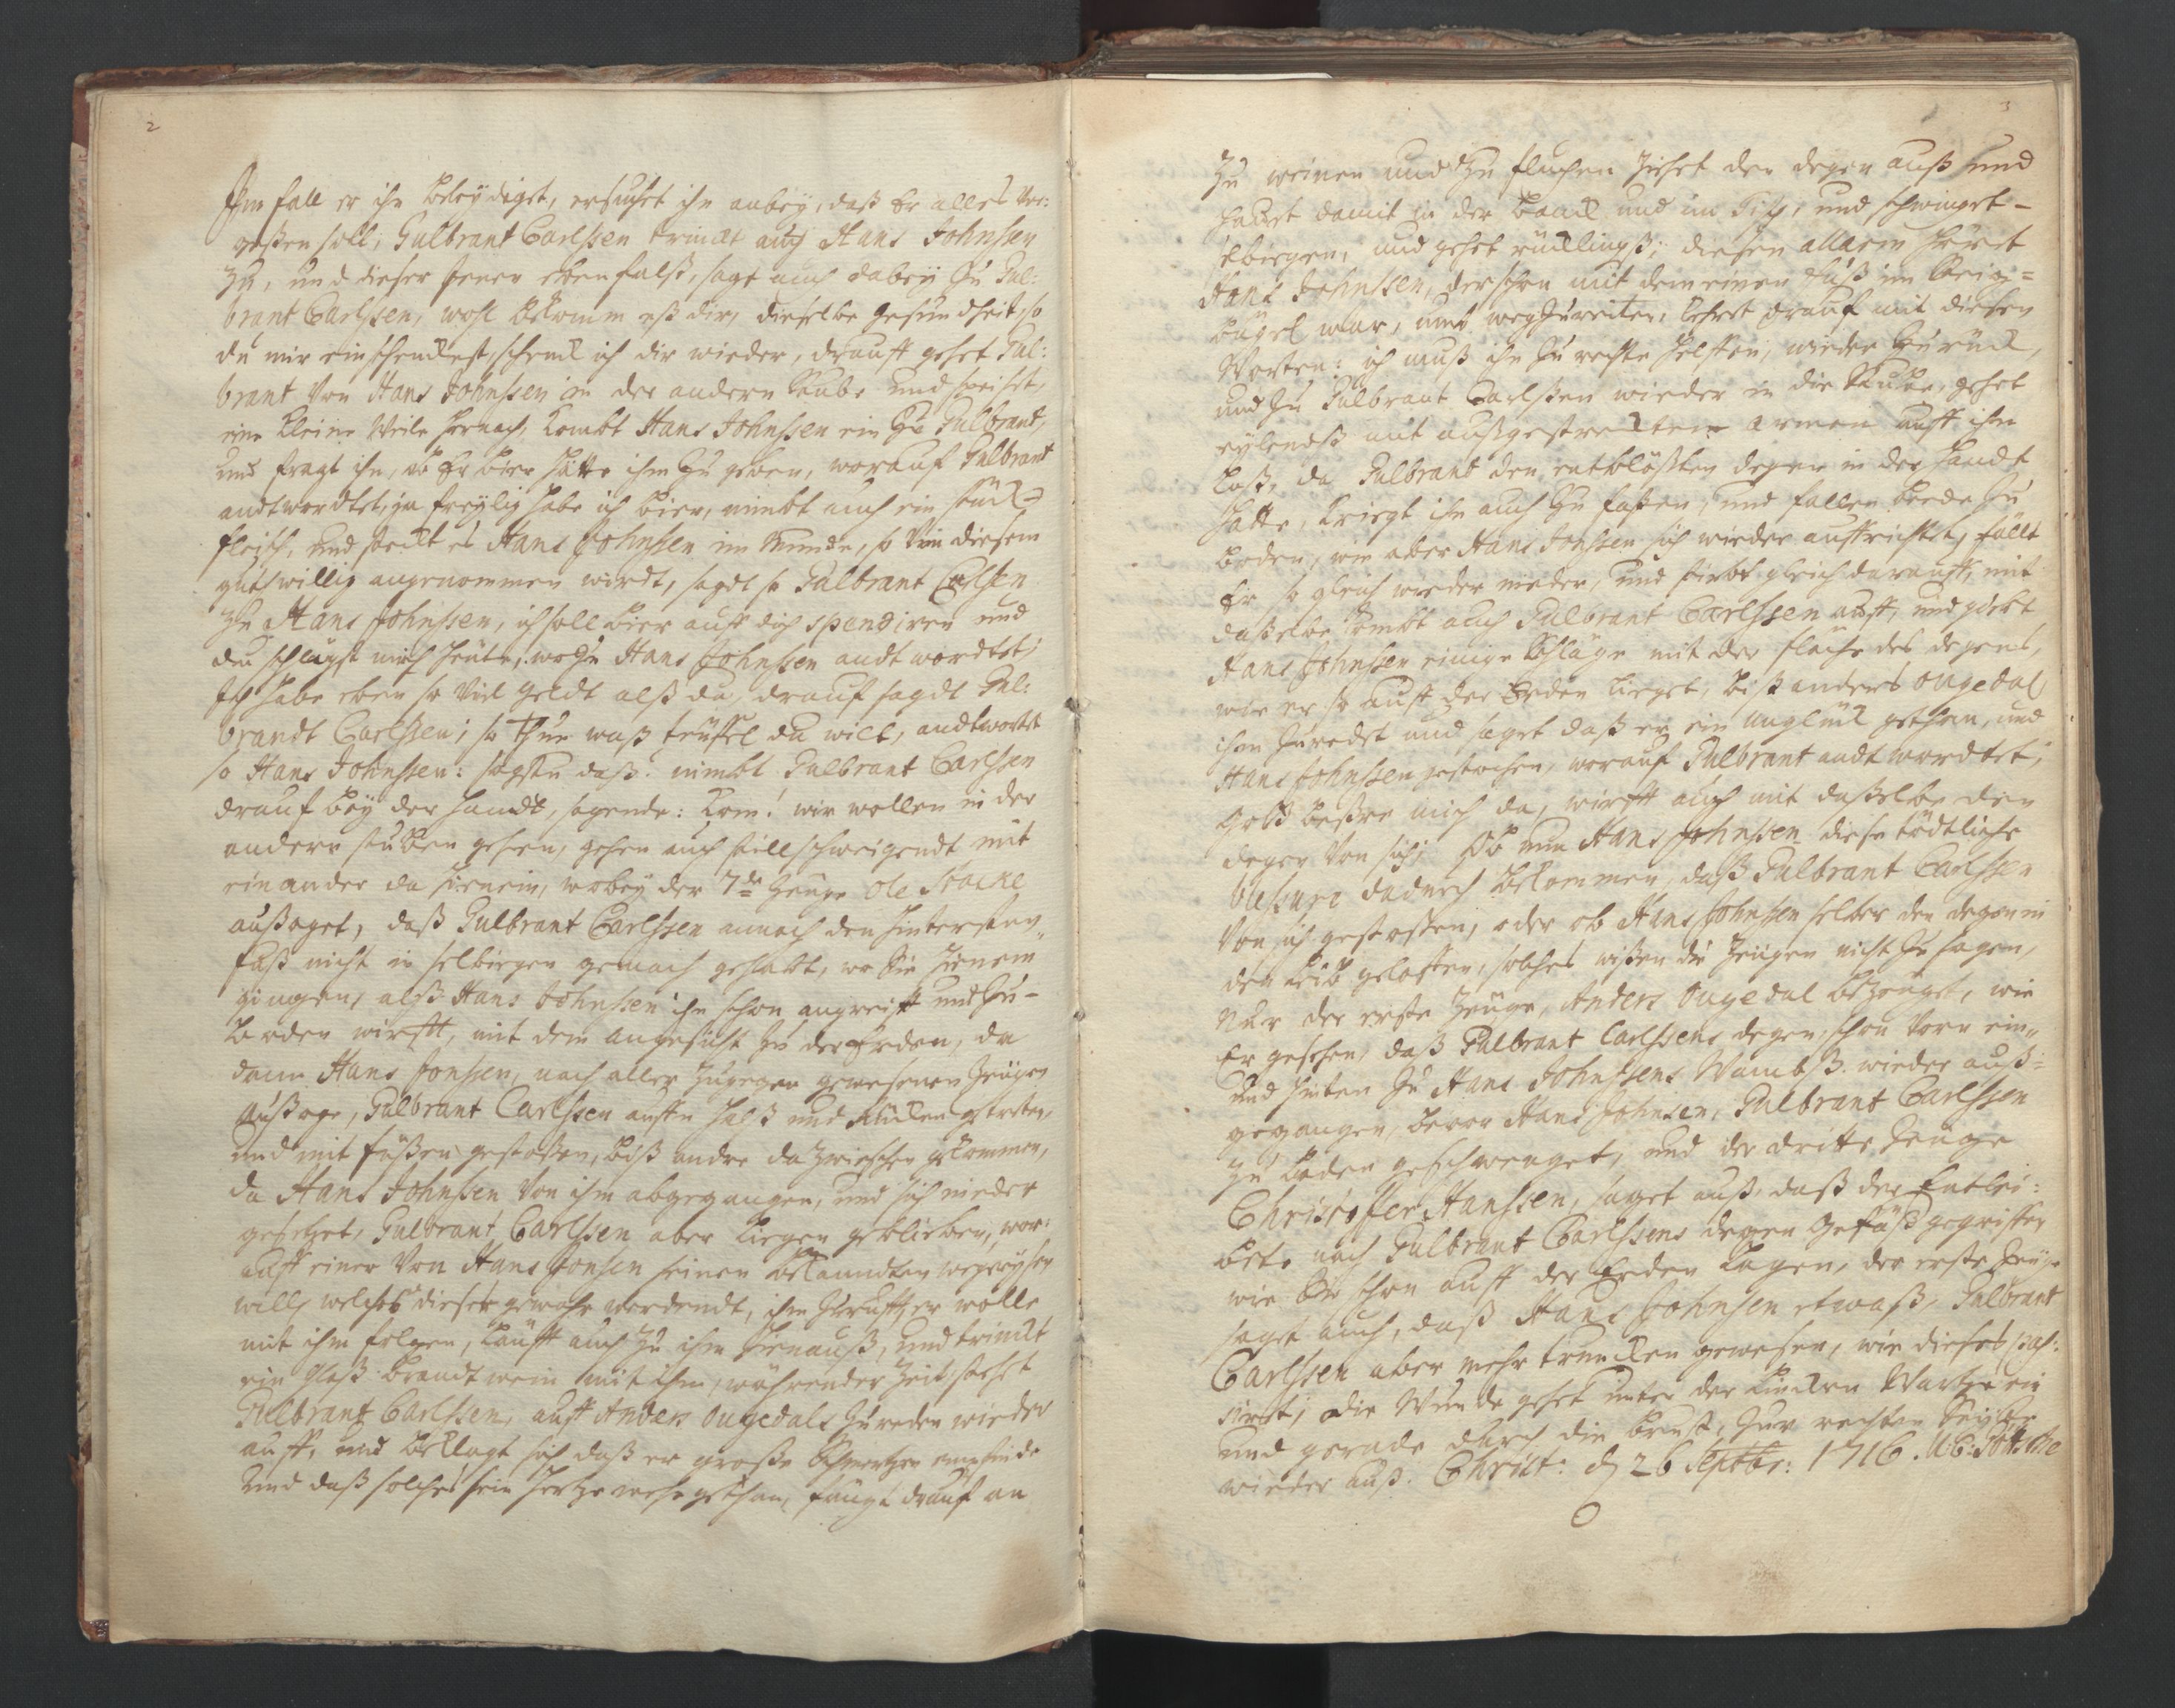 2
Ihm fall er ihn beleydiget, ersuchet ihn anbey, daß Er alles ver:
geßen soll, Gulbrant Carlssen trinckt auch Hans Johnssen
zu, und dieser jenen ebenfalß, sagt auch dabey zu Gul:
brant Carlssen, wohl bekomm eß dir, dieselbe gesundheit, so
du mir einschenckest, schenck ich dir wieder, drauff gehet Gul:
brant von Hans Johnssen in der andern Stube und speiset,
eine kleine Weile hernach, kombt Hans Johnssen ein zu Gulbrant,
und fragt ihn, ob Er bier hätte ihm zu geben, worauf Gulbrant
andtwordtet, ja freylig habe ich bier, nimbt auch ein stück
fleisch, und steckt es Hans Johnssen im Munde, so von diesem
guthwillig angenommen wirdt, sagdt so Gulbrant Carlsen
zu Hans Johnssen, ich soll bier auff dich spendiren und
du schlägst mich heute, wozu Hans Johnssen andtwordtet;
Ich habe eben so viel geldt alß du, drauf sagdt Gul:
brandt Carlssen; so thue waß teüffel du wilt, andtwortet
so Hans Johnssen: sagstu daß: nimbt Gulbrant Carlssen
drauf bey der handt, sagende: kom! wir wollen in der
andern stuben gehen, gehen auch stillschweigendt mit
einander da hienein, wobey der 7de Zeuge Ole Stocke
außaget, daß Gulbrant Carlssen annoch den hintersten
fuß nicht in selbiegen gemach gehabt, wo Sie hienein
gingen, alß Hans Johnssen ihn schon angreift und zu-
boden wirfft, mit dem angesicht zu der Erden, da
dann Hans Jonssen, nach aller zugegen gewesenen Zeugen
Außage, Gulbrant Carlssen auffn halß und Rücken getreten,
und mit füßen gestoßen, biß andre dazwischen gekommen,
da Hans Johnssen von ihm abgegangen, und sich nieder
gesetzet, Gulbrant Carlssen aber liegen geblieben, wor:
auff einer von Hans Jonsen seinen bekanndten wegreysen
will, welches dieser gewahr werdendt, ihm zurufft, er wolle
mit ihm folgen, läufft auch zu ihm hienauß, und trinckt
ein glaß brandtwein mit ihm, währender Zeit stehet
Gulbrant Carlssen, auff Anders Ougedals zureden wieder
auff, und beklagt sich daß er große Schmertzen empfinde
und daß solches sein hertze wehe gethan, fängt drauf an
3
zu weinen und zu fluchen ziehet den degen auß und
hauet damit in der banck und im Tisch, und schwinget-
selbiegen, und gehet rücklingß; diesen allarm höret
Hans Johnssen, der schon mit dem einen Fuß im Steig=
bügel war, umb wegzureiten, kehret drauf mit diesen
Worten: ich muß ihn zu rechte helffen, wieder zurück,
und zu Gulbrant Carlssen wieder in die Stube, gehet
eylendß mit außgestreckten armen auff ihm
loß, da Gulbrant den entblößten degen in der handt
hatte, kriegt ihn auch zu faßen, und fallen beede zu
boden, wie aber Hans Jonssen sich wieder auffrichtet, fällt
Er so gleich wieder nieder, und stirbt gleich darauff, mit
daßelbe kombt auch Gulbrant Carlssen auff, und giebt
Hans Johnssen einige Schläge mit der fläche des degens,
wie er so auff der Erden lieget, biß anders ougedal
ihm zuredet und saget daß er ein unglück gethan, und
Hans Johnssen gestochen, worauf Gulbrant andtwordtet;
Gott beßre mich da, wirfft auch mit daßelbe den
degen von sich; Ob nun Hans Johnssen diese tödtliche
blessure dadurch bekommen, daß Gulbrant Carlssen
von sich gestoßen, oder ob Hans Johnssen selber den degen in
den leib geloffen, solches wißen die Zeugen nicht zu sagen,
Nur der erste Zeuge, Anders Ougedal bezeuget, wie
Er gesehen, daß Gulbrant Carlssens degen, schon vorn ein-
und hinten zu Hans Johnssens Wambß wieder auß=
gegangen, bevor Hans Johnsen, Gulbrant Carlssen
zu boden geschwenget, und der dritte Zeuge
Christoffer Hanssen, saget auß, daß der Entlei:
bete nach Gulbrant Carlssens degen Gefäß gegriffen
wie Sie schon auff der Erden lagen, der erste Zeuge
saget auch, daß Hans Johnsen etwaß, Gulbrant
Carlssen aber mehr truncken gewesen, wie dieses pas:
siret; die Wunde gehet unter der lincken Wartze ein
und gerade durch die brust, zur rechten Seyte
wieder auß. Christ: d 26 Septbr: 1716. M: C: Götsche